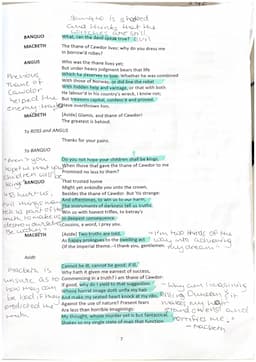 Banquo is shocked
and stunned that the
Witches are still
BANQUO What, can the devil speak true? evil
MACBETH The thane of Cawdor lives: why do you dress me
in borrow'd robes?
ANGUS Who was the thane lives yet;
But under heavy judgment bears that life
Which he deserves to lose. Whether he was combined
With those of Norway, or did line the rebel
With hidden help and vantage, or that with both
He labour'd in his country's wreck, I know not;
But treasons capital, confess'd and proved,
Have overthrown him.
Previous
thane of
Cawdor
helped the
enemy
MACBETH (Aside) Glamis, and thane of Cawdor!
The greatest is behind.
To ROSS and ANGUS
Thanks for your pains.
To BANQUO
Do you not hope your children shall be kings,
When those that gave the thane of Cawdor to me
Promised no less to them?
Aren't you
hopeful that your
children will be
kings
BANQUO That trusted home
Might yet enkindle you unto the crown,
Besides the thane of Cawdor. But 'tis strange:
And oftentimes, to win us to our harm,
The instruments of darkness tell us truths,
Win us with honest trifles, to betray's
In deepest consequence.
Cousins, a word, I pray you.
MACBETH (Aside) Two truths are told,
As happy prologues to the swelling act
Of the imperial theme.--I thank you, gentlemen.
I'm two thirds of the
way into achieving
my dream
Aside
Cannot be ill, cannot be good: if ill,
Why hath it given me earnest of success,
Commencing in a truth? I am thane of Cawdor:
If good, why do I yield to that suggestion
Whose horrid image doth unfix my hair
And make my seated heart knock at my ribs,
Against the use of nature? Present fears
Are less than horrible imaginings:
My thought, whose murder yet is but fantastical,
Shakes so my single state of man that function
Macbeth is
unsure, as to
how
be bad if they
predicted the
truth.
Why am I imagining
killing Duncan it
makes my hair
stand on end and
horrifies me."
- Macbeth
7